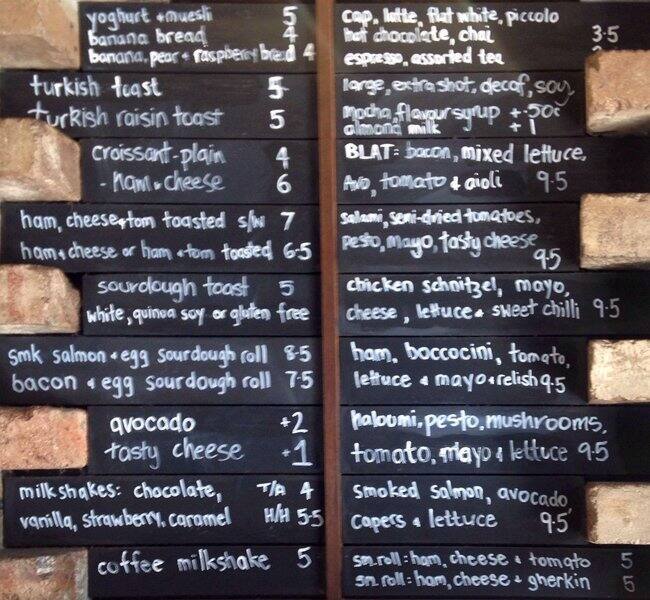 yoghurt + muesli 5
banana bread 4
banana, pear + raspberry bread 4
turkish toast 5
turkish raisin toast 5
croissant - plain 4
- ham + cheese 6
ham, cheese + tom toasted s/w 7
ham + cheese or ham + tom toasted 6.5
sourdough toast 5
white, quinoa soy or gluten free
smk salmon + egg sourdough roll 8.5
bacon + egg sourdough roll 7.5
avocado +2
tasty cheese +1
milkshakes: chocolate, T/A 4
vanilla, strawberry, caramel H/H 5.5
coffee milkshake 5
cap, latte, flat white, piccolo
hot chocolate, chai 3.5
espresso, assorted tea
large, extra shot, decaf, soy
mocha, flavour syrup + .50c
almond milk + 1
BLAT: bacon, mixed lettuce,
Avo, tomato + aioli 9.5
salami, semi-dried tomatoes,
pesto, mayo, tasty cheese
9.5
chicken schnitzel, mayo,
cheese, lettuce + sweet chilli 9.5
ham, boccocini, tomato,
lettuce + mayo + relish 9.5
haloumi, pesto, mushrooms,
tomato, mayo + lettuce 9.5
smoked salmon, avocado
capers + lettuce 9.5
sm. roll: ham, cheese + tomato 5
sm. roll: ham, cheese + gherkin 5